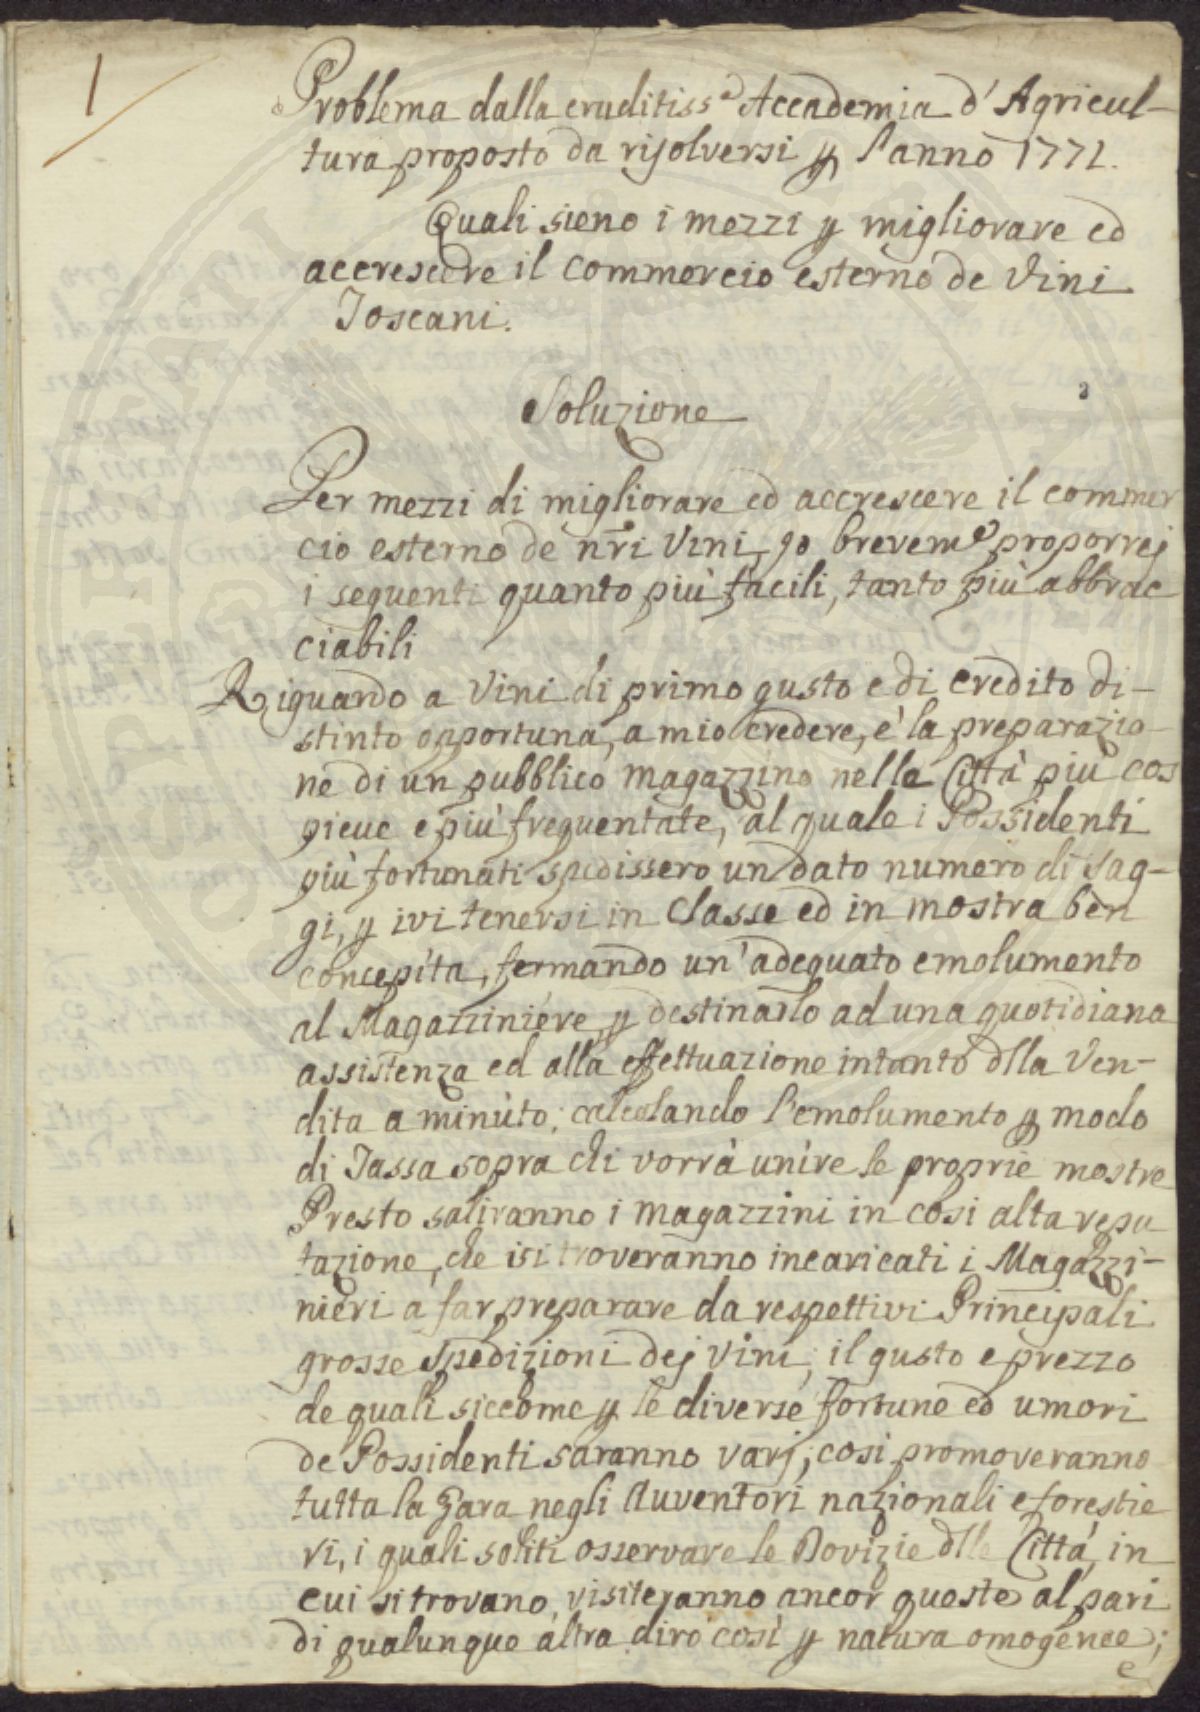 1
Problema dalla eruditiss.a Accademia d'Agricul-
tura proposto da risolversi p l'anno 1771.
Quali sieno i mezzi p migliorare ed
accrescere il commercio esterno de Vini
Toscani.
Soluzione
Per mezzi di migliorare ed accrescere il commer
cio esterno de nri Vini, io brevem.e proporrej
i seguenti quanto più facili, tanto più abbrac
ciabili
Riguardo a Vini di primo gusto e di credito di-
stinto opportuna, a mio credere, e' la preparazio-
ne di un pubblico magazzino nelle Città più cos
picue e più frequentate, al quale i Possidenti
più fortunati spedissero un dato numero di sag-
gi, p ivi tenersi in Classe ed in mostra ben
concepita, fermando un'adequato emolumento
al Magazziniere, p destinarlo ad una quotidiana
assistenza ed alla effettuazione intanto dlla Ven-
dita a minuto; calcolando l'emolumento p modo
di Tassa sopra chi vorrà unire le proprie mostre
Presto saliranno i magazzini in così alta repu
tazione, che isi troveranno incaricati i Magazzi-
nieri a far preparare da respettivi Principali
grosse spedizioni dej vini; il gusto e prezzo
de quali siccome p le diverse fortune ed umori
de Possidenti saranno varj, così promoveranno
tutta la Gara negli Avventori nazionali e forestie
ri, i quali soliti osservare le Dovizie dlle Città, in
cui si trovano, visiteranno ancor queste al pari
di qualunque altra dirò così p natura omogenee;
e